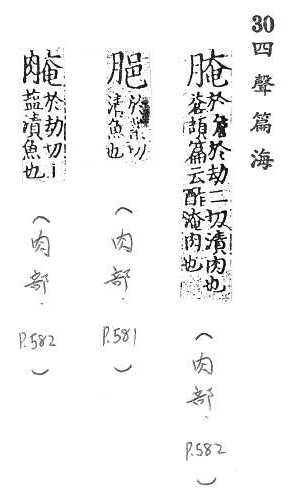 30四聲篇海
腌
於詹於劫二切漬肉也
蒼頡篇云酢淹肉也
(肉部.
P.582
)
於業切
漬魚也
(肉部.
P.581
)
於劫切
漬魚也
(肉部.
P.582
)